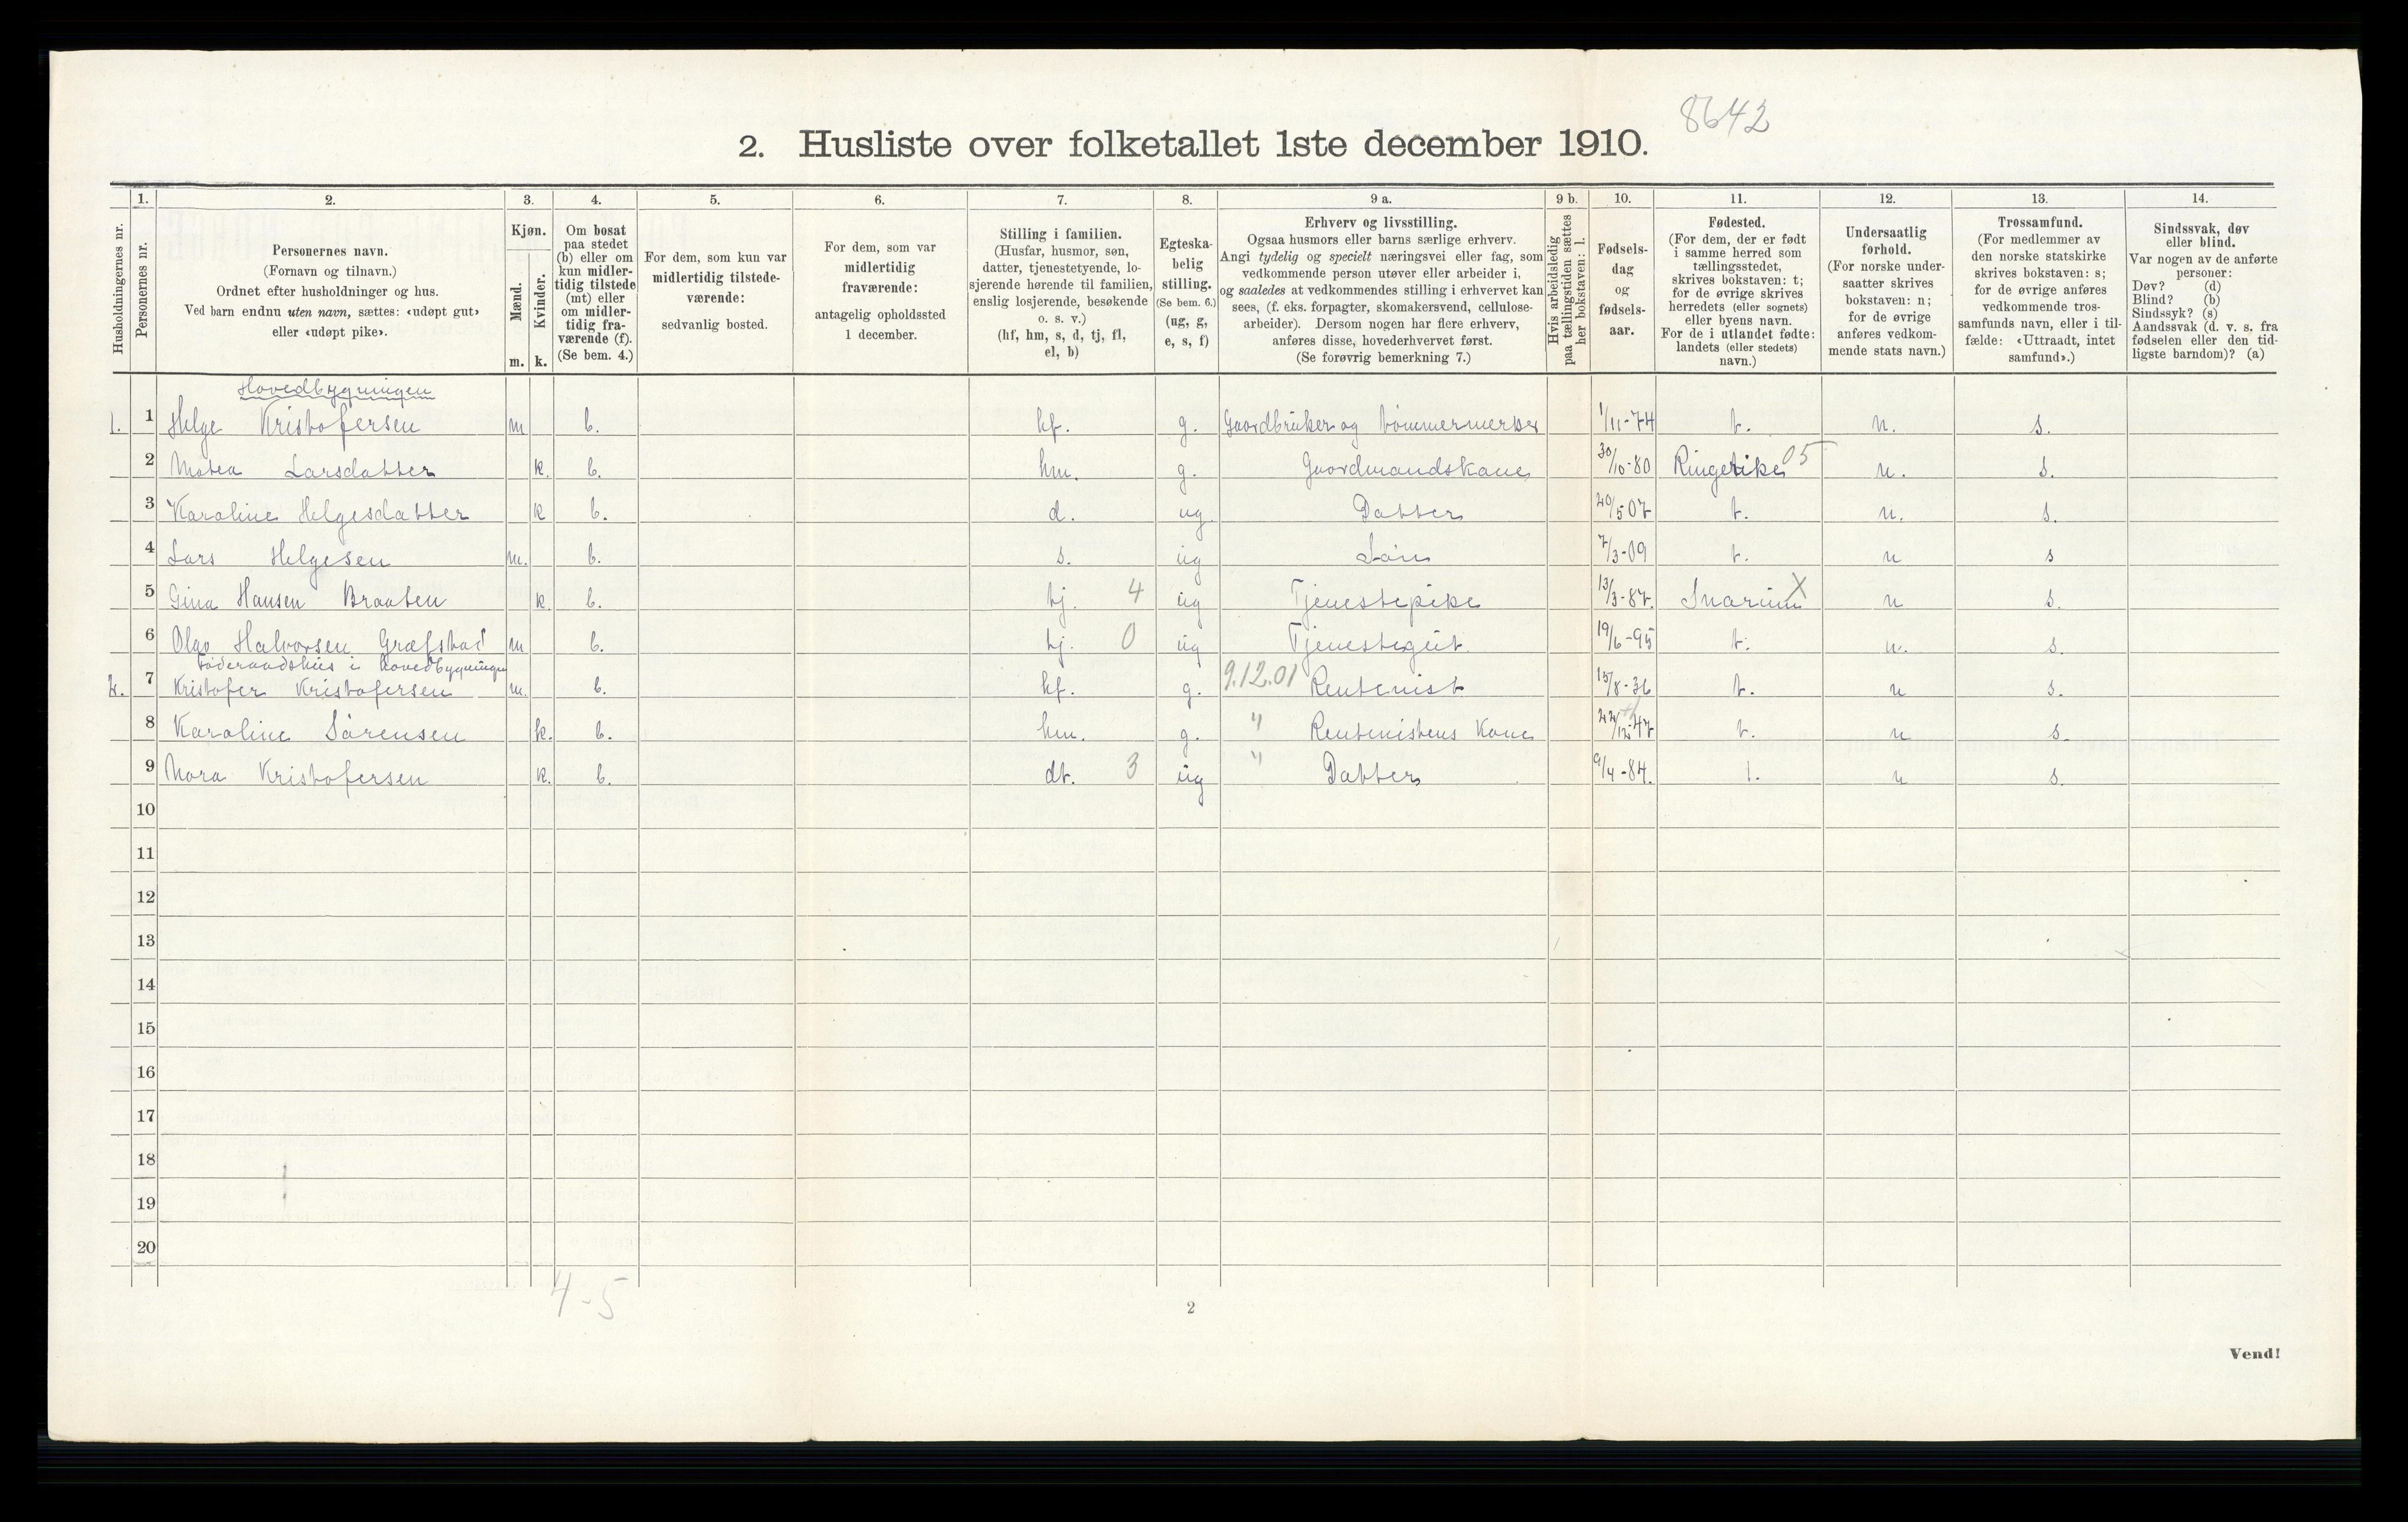 8642
2. Husliste over folketallet 1ste december 1910.
Husholdningernes nr.
1.
Personernes nr.
2.
Personernes navn.
(Fornavn og tilnavn.)
Ordnet efter husholdninger og hus.
Ved barn endnu uten navn, sættes: «udøpt gut»
eller «udøpt pike».
3.
Kjøn.
Mænd.
Kvinder.
m. k.
4.
Om bosat
paa stedet
(b) eller om
kun midler-
tidig tilstede
(mt) eller
om midler-
tidig fra-
værende (f).
(Se bem. 4.)
5.
For dem, som kun var
midlertidig tilstede-
værende:
sedvanlig bosted.
6.
For dem, som var
midlertidig
fraværende:
antagelig opholdssted
1 december.
7.
Stilling i familien.
(Husfar, husmor, søn,
datter, tjenestetyende, lo-
sjerende hørende til familien,
enslig losjerende, besøkende
o. s. v.)
(hf, hm, s, d, tj, fl,
el, b)
8.
Egteska-
belig
stilling.
(Se bem. 6.)
(ug, g,
e, s, f)
9 a.
Erhverv og livsstilling.
Ogsaa husmors eller barns særlige erhverv.
Angi tydelig og specielt næringsvei eller fag, som
vedkommende person utøver eller arbeider i,
og saaledes at vedkommendes stilling i erhvervet kan
sees, (f. eks. forpagter, skomakersvend, cellulose-
arbeider). Dersom nogen har flere erhverv,
anføres disse, hovederhvervet først.
(Se forøvrig bemerkning 7.)
9 b.
Hvis arbeidsledig
paa tællingstiden sættes
her bokstaven: l.
10.
Fødsels-
dag
og
fødsels-
aar.
11.
Fødested.
(For dem, der er født
i samme herred som
tællingsstedet,
skrives bokstaven: t;
for de øvrige skrives
herredets (eller sognets)
eller byens navn.
For de i utlandet fødte:
landets (eller stedets)
navn.)
12.
Undersaatlig
forhold.
(For norske under-
saatter skrives
bokstaven: n;
for de øvrige
anføres vedkom-
mende stats navn.)
13.
Trossamfund.
(For medlemmer av
den norske statskirke
skrives bokstaven: s;
for de øvrige anføres
vedkommende tros-
samfunds navn, eller i til-
fælde: «Uttraadt, intet
samfund».)
14.
Sindssvak, døv
eller blind.
Var nogen av de anførte
personer:
Døv? (d)
Blind? (b)
Sindssyk? (s)
Aandssvak (d. v. s. fra
fødselen eller den tid-
ligste barndom)? (a)
Hovedbygningen
1. 1 Helge Kristofersen m b. hf. g. Gaardbruker og tømmermerker 1/11-74 t. n. s.
2 Matea Larsdatter k. b. hm. g. Gaardmandskone 30/10-80 Ringerike 05 n. s.
3 Karoline Helgesdatter k b. d. ug Datter 20/5 07 t. n. s.
4 Lars Helgesen m. b. s. ug Søn 7/3-09 t. n s
5 Gina Hansen Braaten k. b. tj. 4 ug Tjenestepike 13/3-87. Snarum X n s.
6 Olav Halvorsen Græfstad m b. tj. 0 ug Tjenestegut 19/6-95 t. n. s.
Føderaadshus i hovedbygningen
2. 7 Kristofer Kristofersen m. b. hf. g. 9.12.01 Rentenist 15/8-36 t. n s.
8 Karoline Sørensen k. b. hm. g. " Rentenistens Kone 22/12-47 t. n s.
9 Nora Kristofersen k. b. dt. 3 ug " Datter 9/4-84. t. n s.
10
11
12
13
14
15
16
17
18
19
20
4-5
2
Vend!